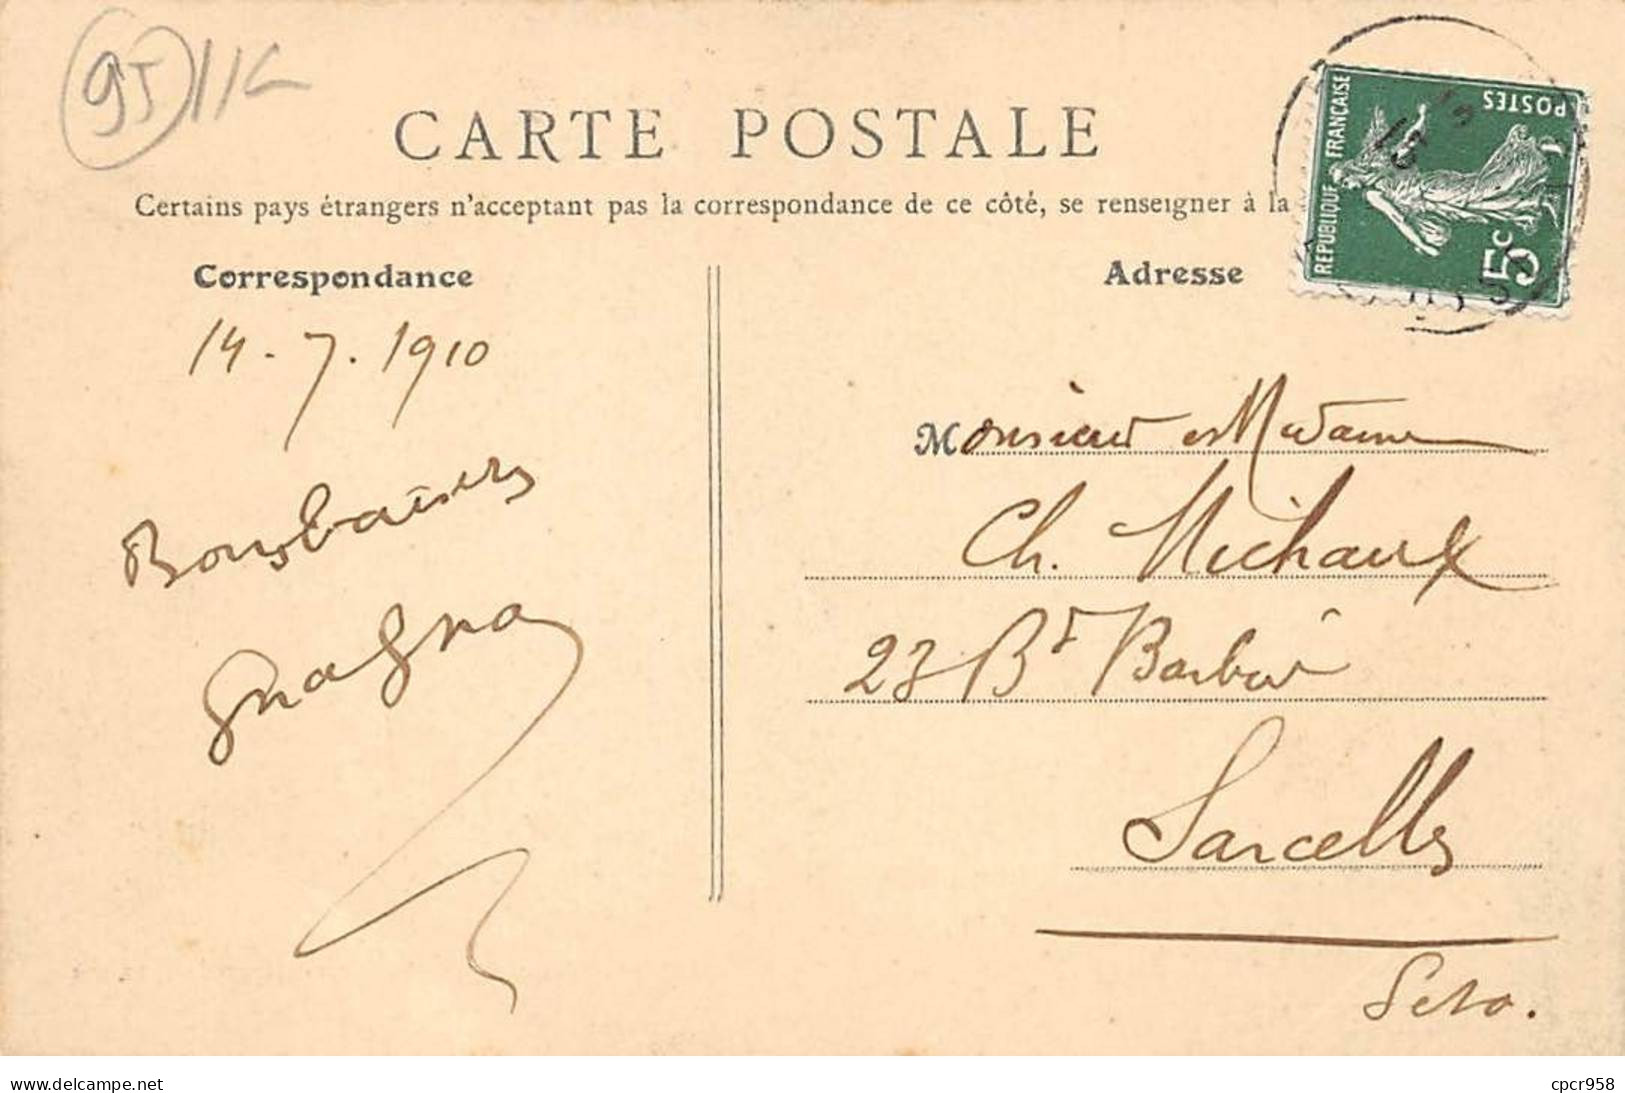 95
CARTE POSTALE
Certains pays étrangers n'acceptant pas la correspondance de ce côté, se renseigner à la
RÉPUBLIQUE FRANÇAISE
POSTES
5c
Correspondance
Adresse
14-7.1910
Bons baisers
Monsieur et Madame
Ch. Michaux
23 Bd
Sarcelles
Seto.
www.delcampe.net
cpcr958